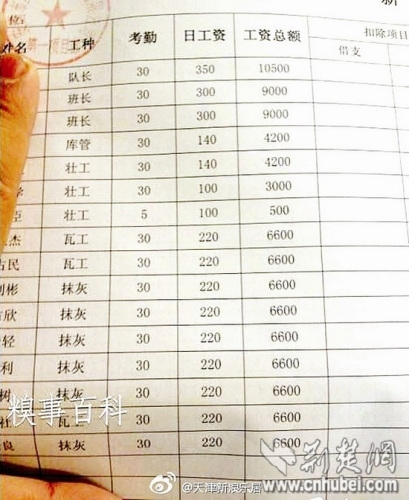 位
姓名 工种 考勤 日工资 工资总额 扣除项目
借支
队长 30 350 10500
班长 30 300 9000
班长 30 300 9000
库管 30 140 4200
壮工 30 140 4200
壮工 30 100 3000
臣 壮工 5 100 500
杰 瓦工 30 220 6600
古民 瓦工 30 220 6600
刘彬 抹灰 30 220 6600
欣 抹灰 30 220 6600
轻 抹灰 30 220 6600
利 抹灰 30 220 6600
树 抹灰 30 220 6600
抹灰 30 220 6600
良 抹灰 30 220 6600
糗事百科
@天津新浪乐居
荆楚网
www.cnhubei.com